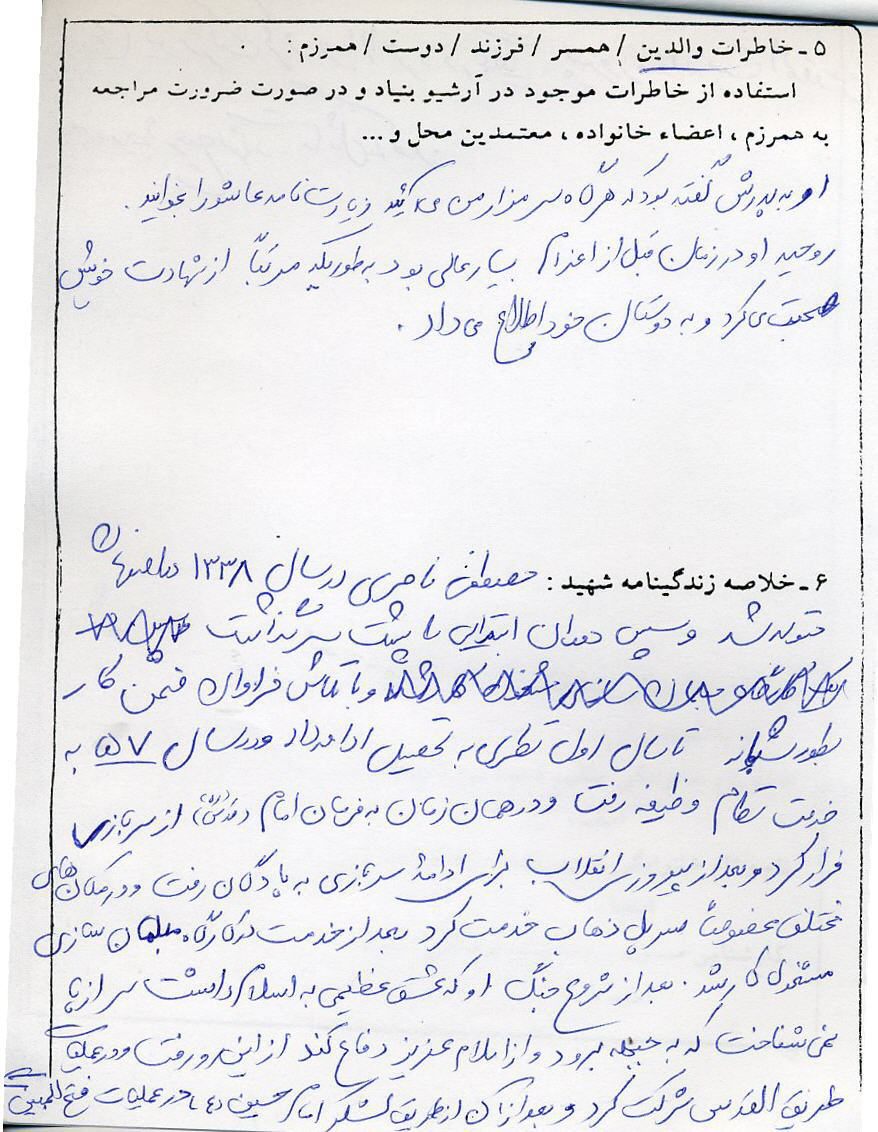 ۵ ـ خاطرات والدین / همسر / فرزند / دوست / همرزم :
استفاده از خاطرات موجود در آرشیو بنیاد و در صورت ضرورت مراجعه
به همرزم ، اعضاء خانواده ، معتمدین محل و ...
او به پدرش گفته بود که هر گاه سر مزار من می آئید زیارت نامه عاشورا بخوانید .
روحیه او در زمان قبل از اعزام بسیار عالی بود به طوریکه مرتباً از شهادت خویش
صحبت می کرد و به دوستان خود اطلاع می داد .
۶ ـ خلاصه زندگینامه شهید : مصطفی ناصری در سال ۱۳۳۸ در اصفهان
متولد شد و سپس دوران ابتدایی را پشت سر گذاشت
و با تلاش فراوان ضمن کار
بطور شبانه تا سال اول نظری به تحصیل ادامه داد و در سال ۵۷ به
خدمت نظام وظیفه رفت و در همان زمان به فرمان امام از سربازی
فرار کرد و بعد از پیروزی انقلاب برای ادامهٔ سربازی به پادگان رفت و در مکان های
مختلف مخصوصاً سرپل ذهاب خدمت کرد بعد از خدمت در کارگاه مبلمان سازی
مشغول کار شد . بعد از شروع جنگ او که عشق عظیمی به اسلام داشت سر از پا
نمی شناخت که به جبهه برود و از اسلام عزیز دفاع کند از این رو رفت و در عملیات
طریق القدس شرکت کرد و بعد از آن از طریق لشکر امام حسین (ع) در عملیات فتح المبین